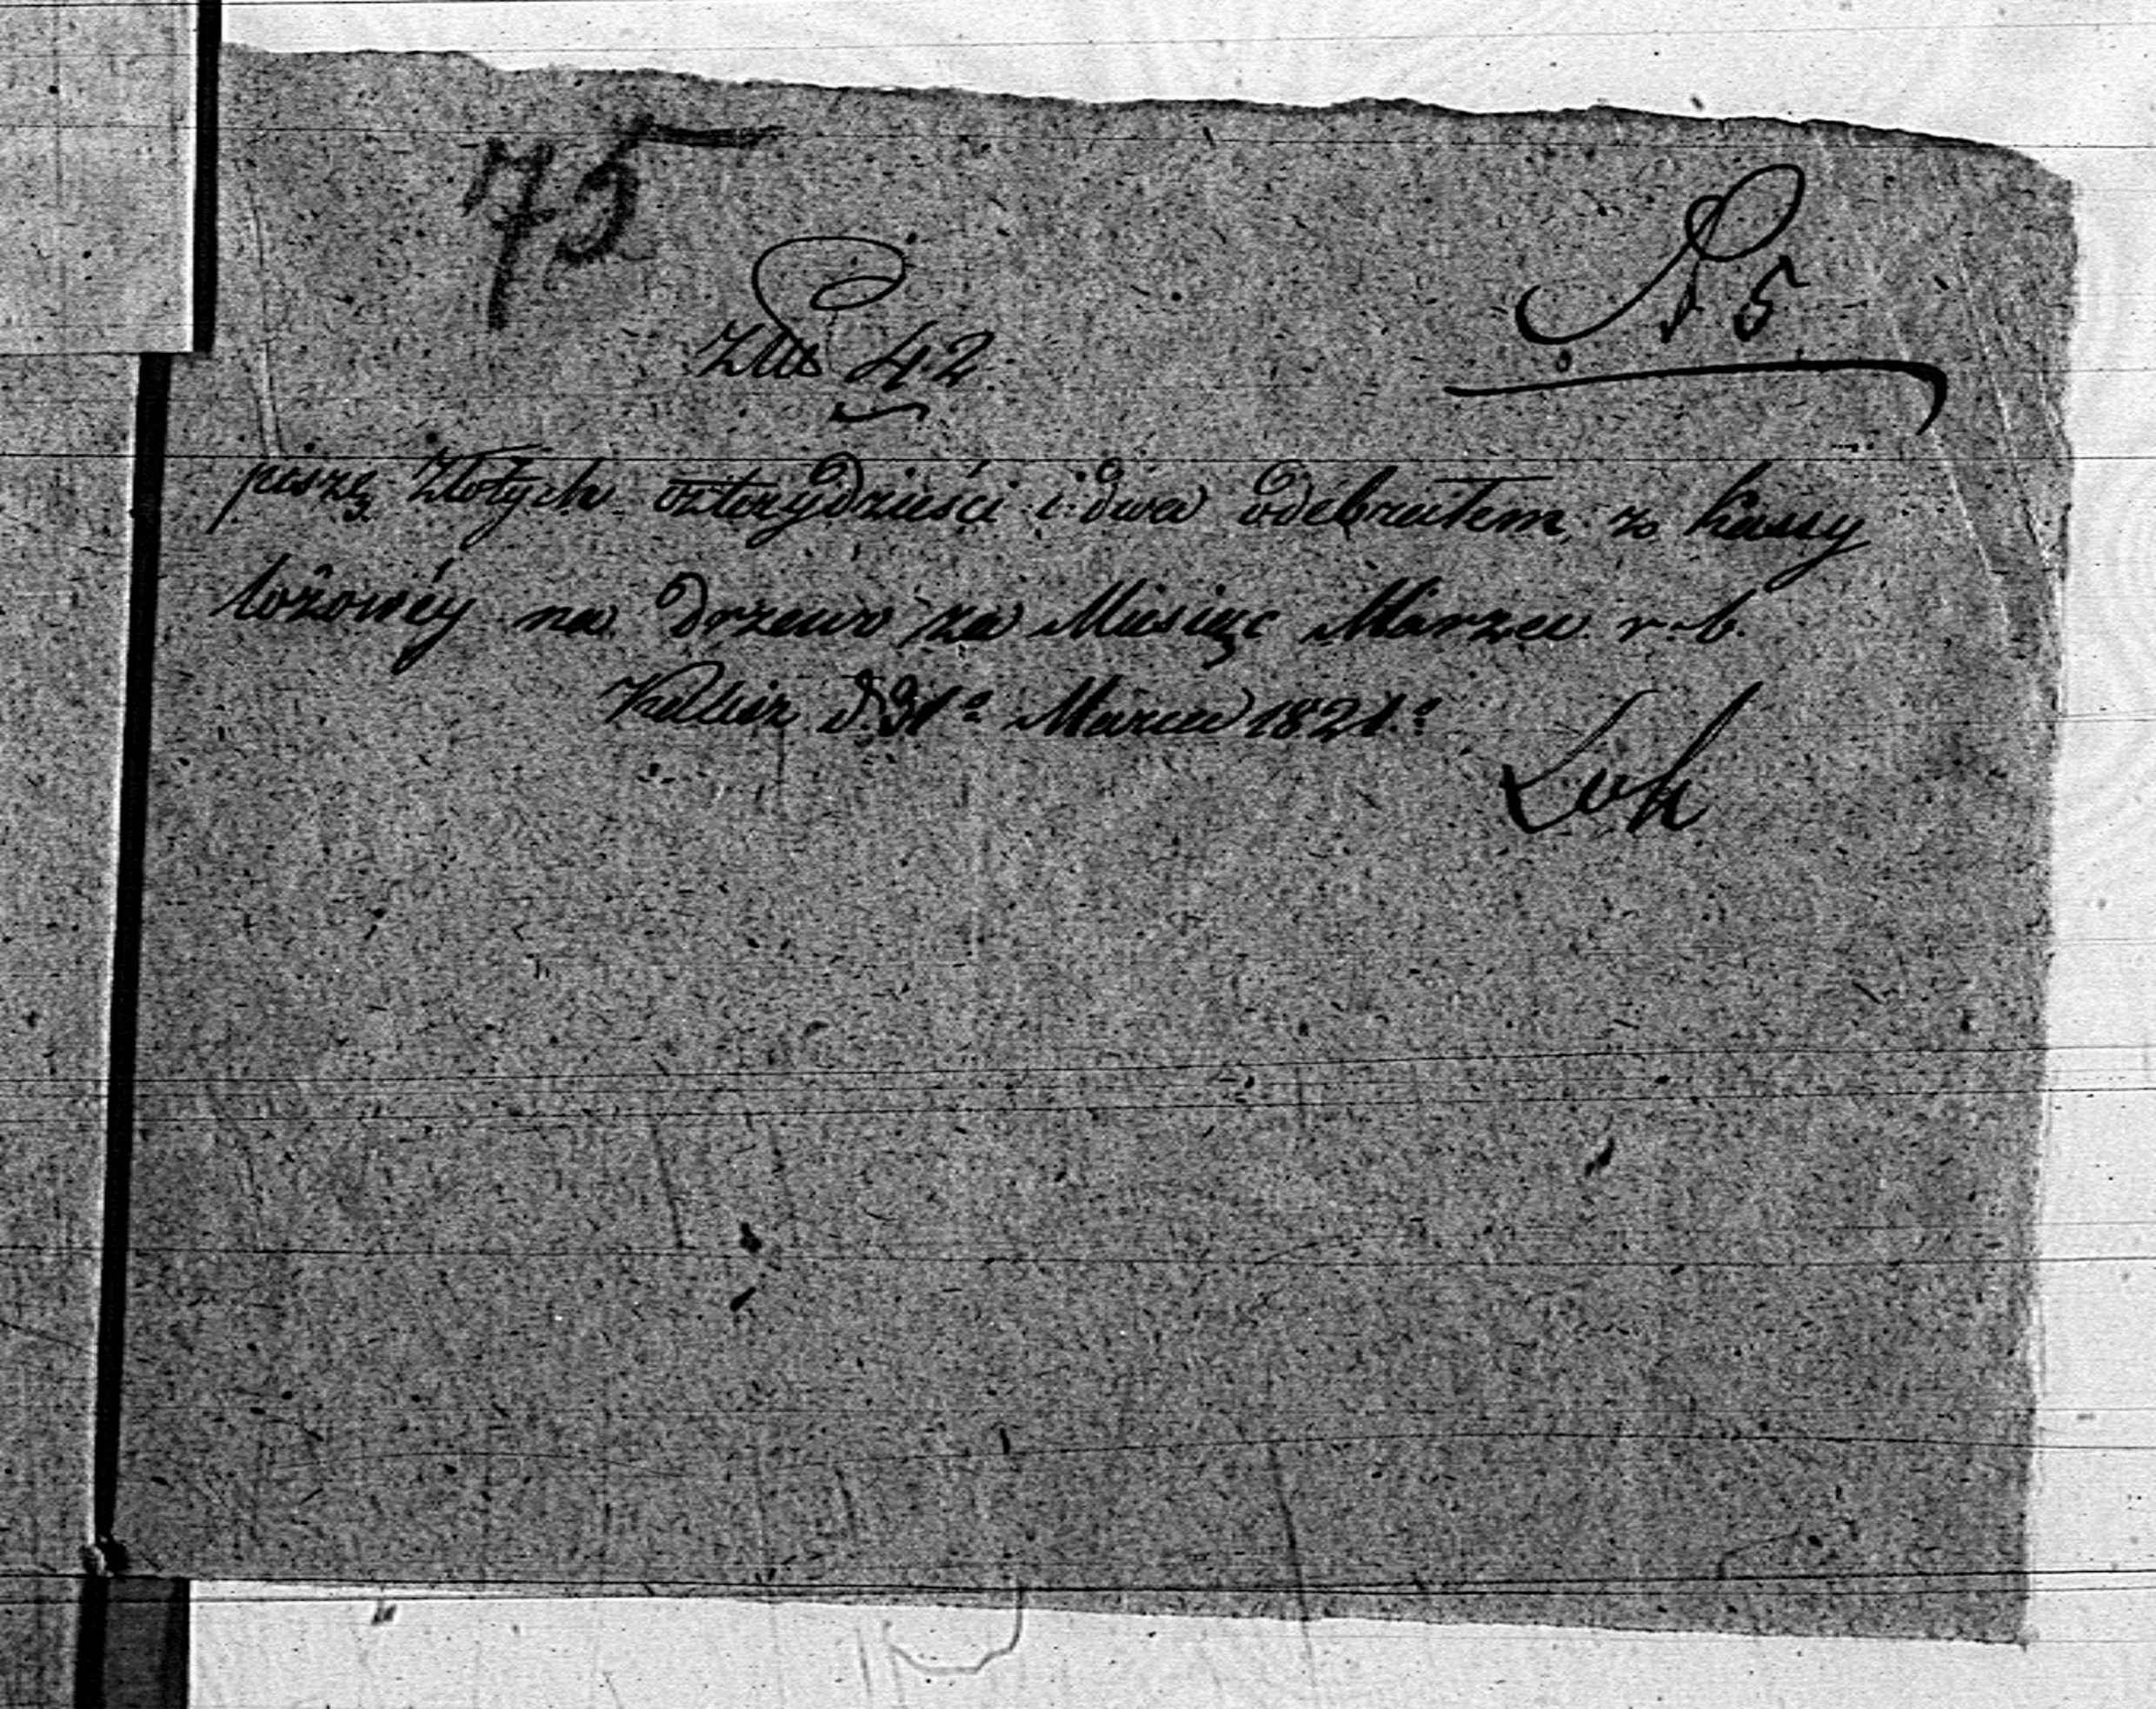 75
N 5
Złł 42
piszę Złotych czterydzieści i dwa odebrałem z kassy
lożowéy na drzewo za Miesiąc Marzec r. b.
Kalisz d 31º Marca 1821º